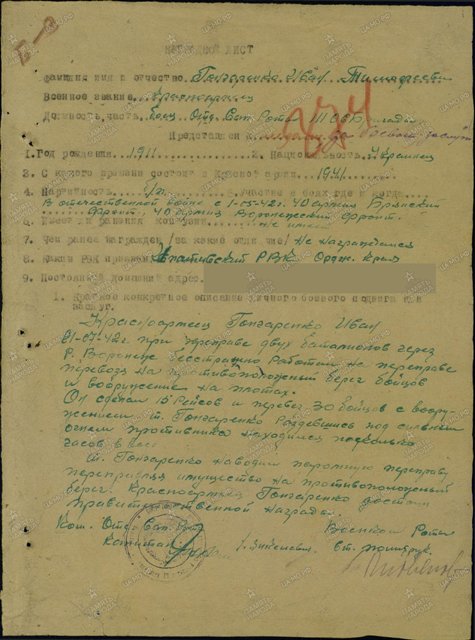 НАГРАДНОЙ ЛИСТ
Фамилия имя и отчество. Гончаренко Иван Тимофеевич
Военное звание. Красноармеец
Должность, часть. Боец. Отд. Сап. Рота
Представлен к медали "за боевые заслуги
1. Год рождения...1911... 2. Национальность. Украинец
3. С какого времени состоит в Красной армии... 1941
4. Партийность. б/п. 5. Участие в боях где и когда
В отечественной войне с 1-05-42г. 40 армия Брянский
фронт, 40 армия Воронежский фронт.
6. Имеет ли ранения контузии. не имеет
7. Чем ранее награжден /за какие отличие/ Не награждался
8. Каким РВК призван. РВК Ордж. Края
9. Постоянный домашний адрес.
1. Краткое конкретное описание личного боевого подвига или
заслуг.
Красноармеец Гончаренко Иван
21-07-42г. при переправе двух батальонов через
р. Воронеж бесстрашно работал на переправе
перевозу на противоположный берег бойцов
и вооружение на плотах.
Он сделал 15 рейсов и перевез 30 бойцов с воору-
жением. т. Гончаренко раздевшись под сильным
огнем противника находился несколько
часов в воде.
т. Гончаренко наводил паромную переправу
переправляя имущество на противоположный
берег. Красноармеец Гончаренко достоин
правительственной награды.
Ком. Отд. Сап. Роты Военком Роты
Капитан Ст. политрук